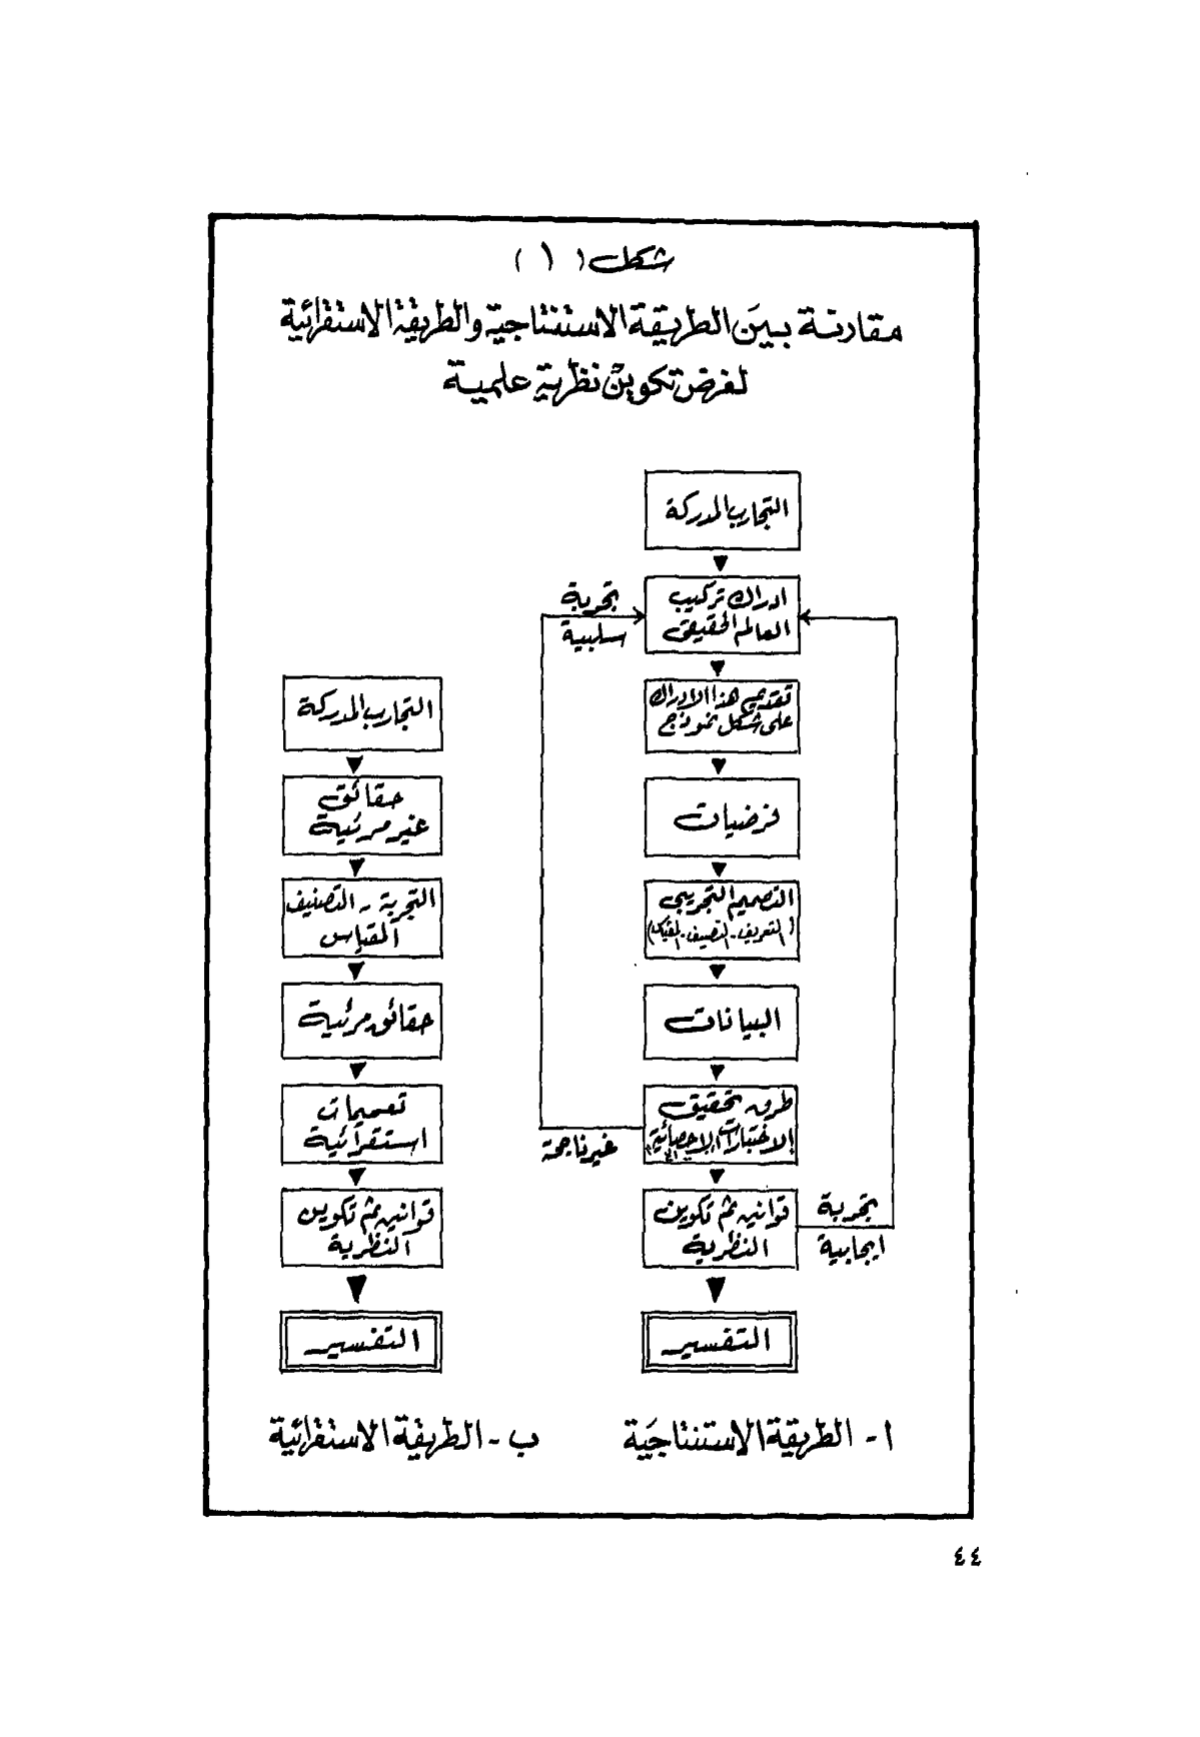 شكل (١)
مقارنة بين الطريقة الاستنتاجية والطريقة الاستقرائية
لغرض تكوين نظرية علمية
التجارب المدركة
ادراك تركيب
العالم الحقيقي
تقديم هذا الادراك
على شكل نموذج
فرضيات
التصميم التجريبي
(التعريف - التصنيف - المقياس)
البيانات
طرق تحقيق
الاختبارات الاحصائية
قوانين ثم تكوين
النظرية
التفسير
تجربة
سلبية
غير ناجحة
تجربة
ايجابية
أ - الطريقة الاستنتاجية
التجارب المدركة
حقائق
غير مرئية
التجربة - التصنيف
المقياس
حقائق مرئية
تعميمات
استقرائية
قوانين ثم تكوين
النظرية
التفسير
ب - الطريقة الاستقرائية
٤٤